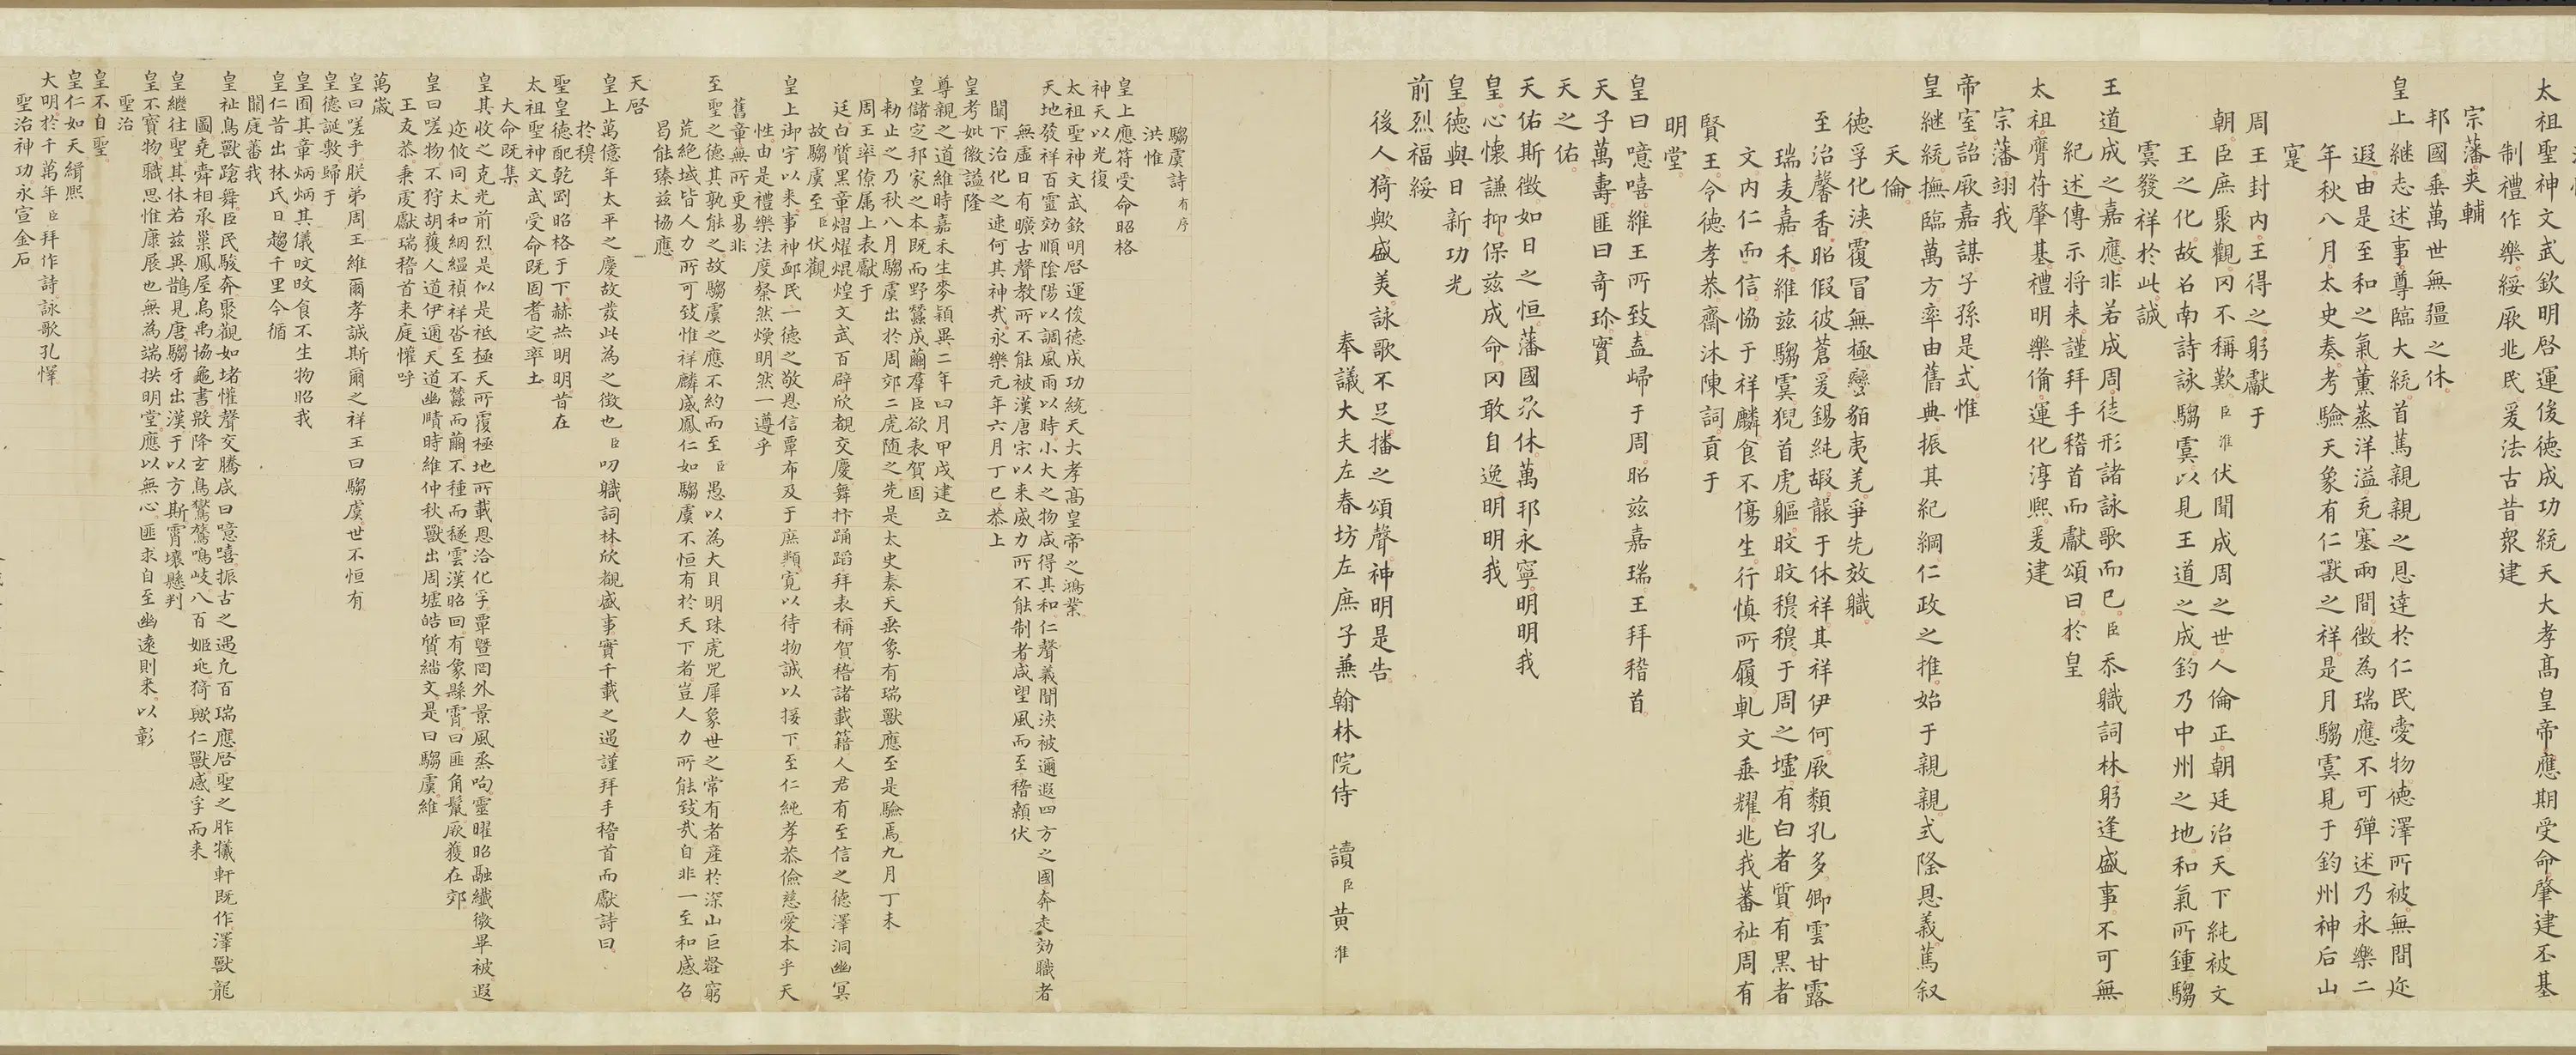 太祖聖神文武欽明啓運俊德成功統天大孝高皇帝應期受命肇建丕基
宗藩夾輔
制禮作樂綏厥兆民爰法古昔衆建
邦國垂萬世無疆之休
皇上繼志述事尊臨大統首篤親親之恩達於仁民愛物德澤所被無間迩
遐由是至和之氣薰蒸洋溢充塞兩間徴為瑞應不可殫述乃永樂二
年秋八月太史奏考驗天象有仁獸之祥是月騶虞見于鈞州神后山
寔
周王封内王得之躬獻于
朝臣庶聚觀罔不稱歎臣淮伏聞成周之世人倫正朝廷治天下純被文
王之化故召南詩詠騶虞以見王道之成鈞乃中州之地和氣所鍾騶
虞發祥於此誠
王道成之嘉應非若成周徒形諸詠歌而已臣忝職詞林躬逢盛事不可無
紀述傳示将来謹拜手稽首而獻頌曰於皇
太祖膺苻肇基禮明樂備運化淳熙爰建
宗藩翊我
帝室詒厥嘉謀子孫是式惟
皇繼統撫臨萬方率由舊典振其紀綱仁政之推始于親親式隆恩義篤叙
天倫
德孚化浹覆冒無極蠻貊夷羌爭先效職
至治馨香昭假彼蒼爰錫純嘏蘢于休祥其祥伊何厥類孔多卿雲甘露
瑞麦嘉禾維兹騶虞猊首虎軀旼旼穆穆于周之墟有白者質有黒者
文内仁而信恊于祥麟食不傷生行慎所履軋文垂耀兆我蕃祉周有
賢王令德孝恭齋沐陳詞貢于
明堂
皇曰噫嘻維王所致盍歸于周昭兹嘉瑞王拜稽首
天子萬壽匪曰奇珎寳
天之佑
天佑斯徴如日之恒藩國永休萬邦永寧明明我
皇心懐謙抑保兹成命罔敢自逸明明我
皇德與日新功光
前烈福綏
後人猗歟盛美詠歌不足播之頌聲神明是告
奉議大夫左春坊左庶子兼翰林院侍讀臣黄淮
騶虞詩有序
洪惟
皇上應符受命昭格
神天以光復
太祖聖神文武欽明啓運俊德成功統天大孝高皇帝之鴻業
天地發祥百靈効順陰陽以調風雨以時小大之物咸得其和仁聲義聞浹被邇遐四方之國奔走効職者
無虚日有曠古聲教所不能被漢唐宋以来威力所不能制者咸望風而至稽顙伏
闕下治化之速何其神㢤永樂元年六月丁巳恭上
皇考妣徽謚隆
尊親之道維時嘉禾生麥穎異二年四月甲戍建立
皇儲定邦家之本既而野蠶成繭羣臣欲表賀固
勅止之乃秋八月騶虞出於周郊二虎随之先是太史奏天垂象有瑞獸應至是驗焉九月丁未
周王率僚属上表獻于
廷白質黒章熠燿焜煌文武百辟欣覩交慶舞抃踊蹈拜表稱賀稽諸載籍人君有至信之德澤洞幽冥
故騶虞至臣伏觀
皇上御宇以来事神郵民一德之敬恩信覃布及于庶類寛以待物誠以接下至仁純孝恭儉慈愛本乎天
性由是禮樂法度粲然煥明然一遵乎
舊章無所更易非
至聖之德其孰能之故騶虞之應不約而至臣愚以為大貝明珠虎兕犀象世之常有者産於深山巨壑窮
荒絶域皆人力所可致惟祥麟威鳳仁如騶虞不恒有於天下者豈人力所能致㢤自非一至和感召
曷能臻兹協應
天啓
皇上萬億年太平之慶故發此為之徴也臣叨職詞林欣覩盛事實千載之遇謹拜手稽首而獻詩曰
於穆
聖皇德配乾剛昭格于下赫然明明昔在
太祖聖神文武受命既固耆定率土
大命既集
皇其收之克光前烈是似是祗極天所覆極地所載恩洽化孚覃曁罔外景風烝呴靈曜昭融纎微畢被遐
迩攸同太和絪緼禎祥沓至不蠶而繭不種而穟雲漢昭回有象縣霄曰匪角鬣厥獲在郊
皇曰嗟物不狩胡獲人道伊邇天道幽賾時維仲秋獸出周墟皓質緇文是曰騶虞維
王友恭秉虔獻瑞稽首来庭懽呼
萬歲
皇曰嗟乎朕弟周王維爾孝誠斯爾之祥王曰騶虞世不恒有
皇德誕敷歸于
皇囿其章炳炳其儀旼旼食不生物昭我
皇仁昔出林氏日趨千里今循
闕庭蕃我
皇祉鳥獸蹌舞臣民駿奔聚觀如堵懽聲交騰咸曰噫嘻振古之遇凢百瑞應啓聖之胙犧軒既作澤獸龍
圖堯舜相承巢鳳屋烏禹協龜書殷降玄鳥鸑鷟鳴岐八百姬兆猗歟仁獸感孚而来
皇繼往聖其休若兹異鵲見唐騶牙出漢于以方斯霄壤懸判
皇不寳物職思惟康展也無為端拱明堂應以無心匪求自至幽遠則来以彰
聖治
皇不自聖
皇仁如天緝熙
大明於千萬年臣拜作詩詠歌孔懌
聖治神功永宣金石